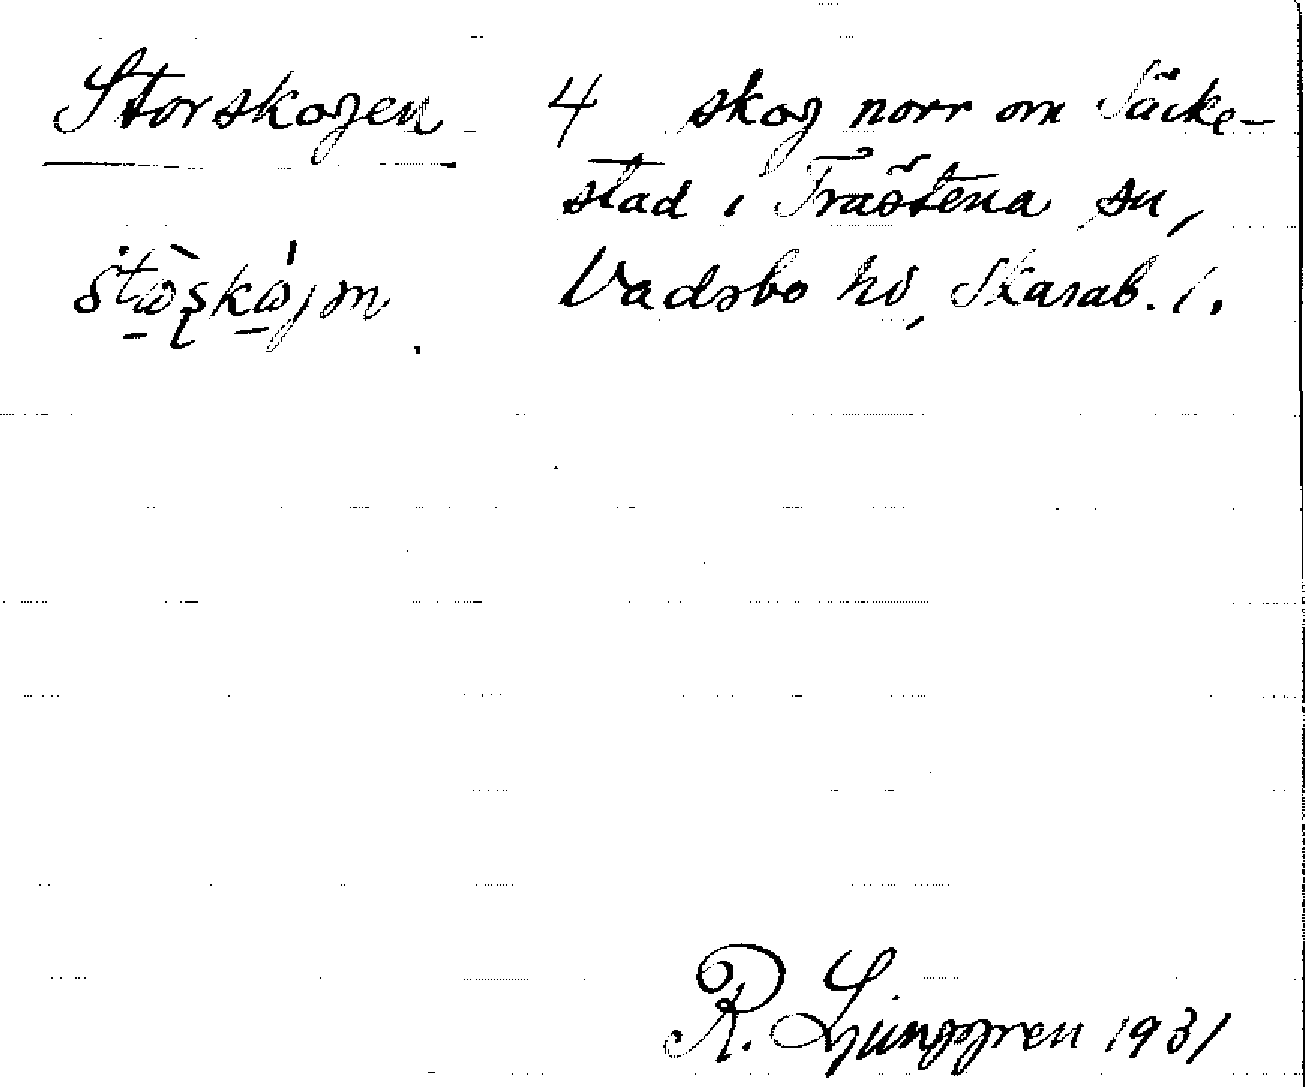 Storskogen 4 skog norr om Säcke-
stad i Trästena sn,
Vadsbo hd, Skarab. l.
R. Ljunggren 1931